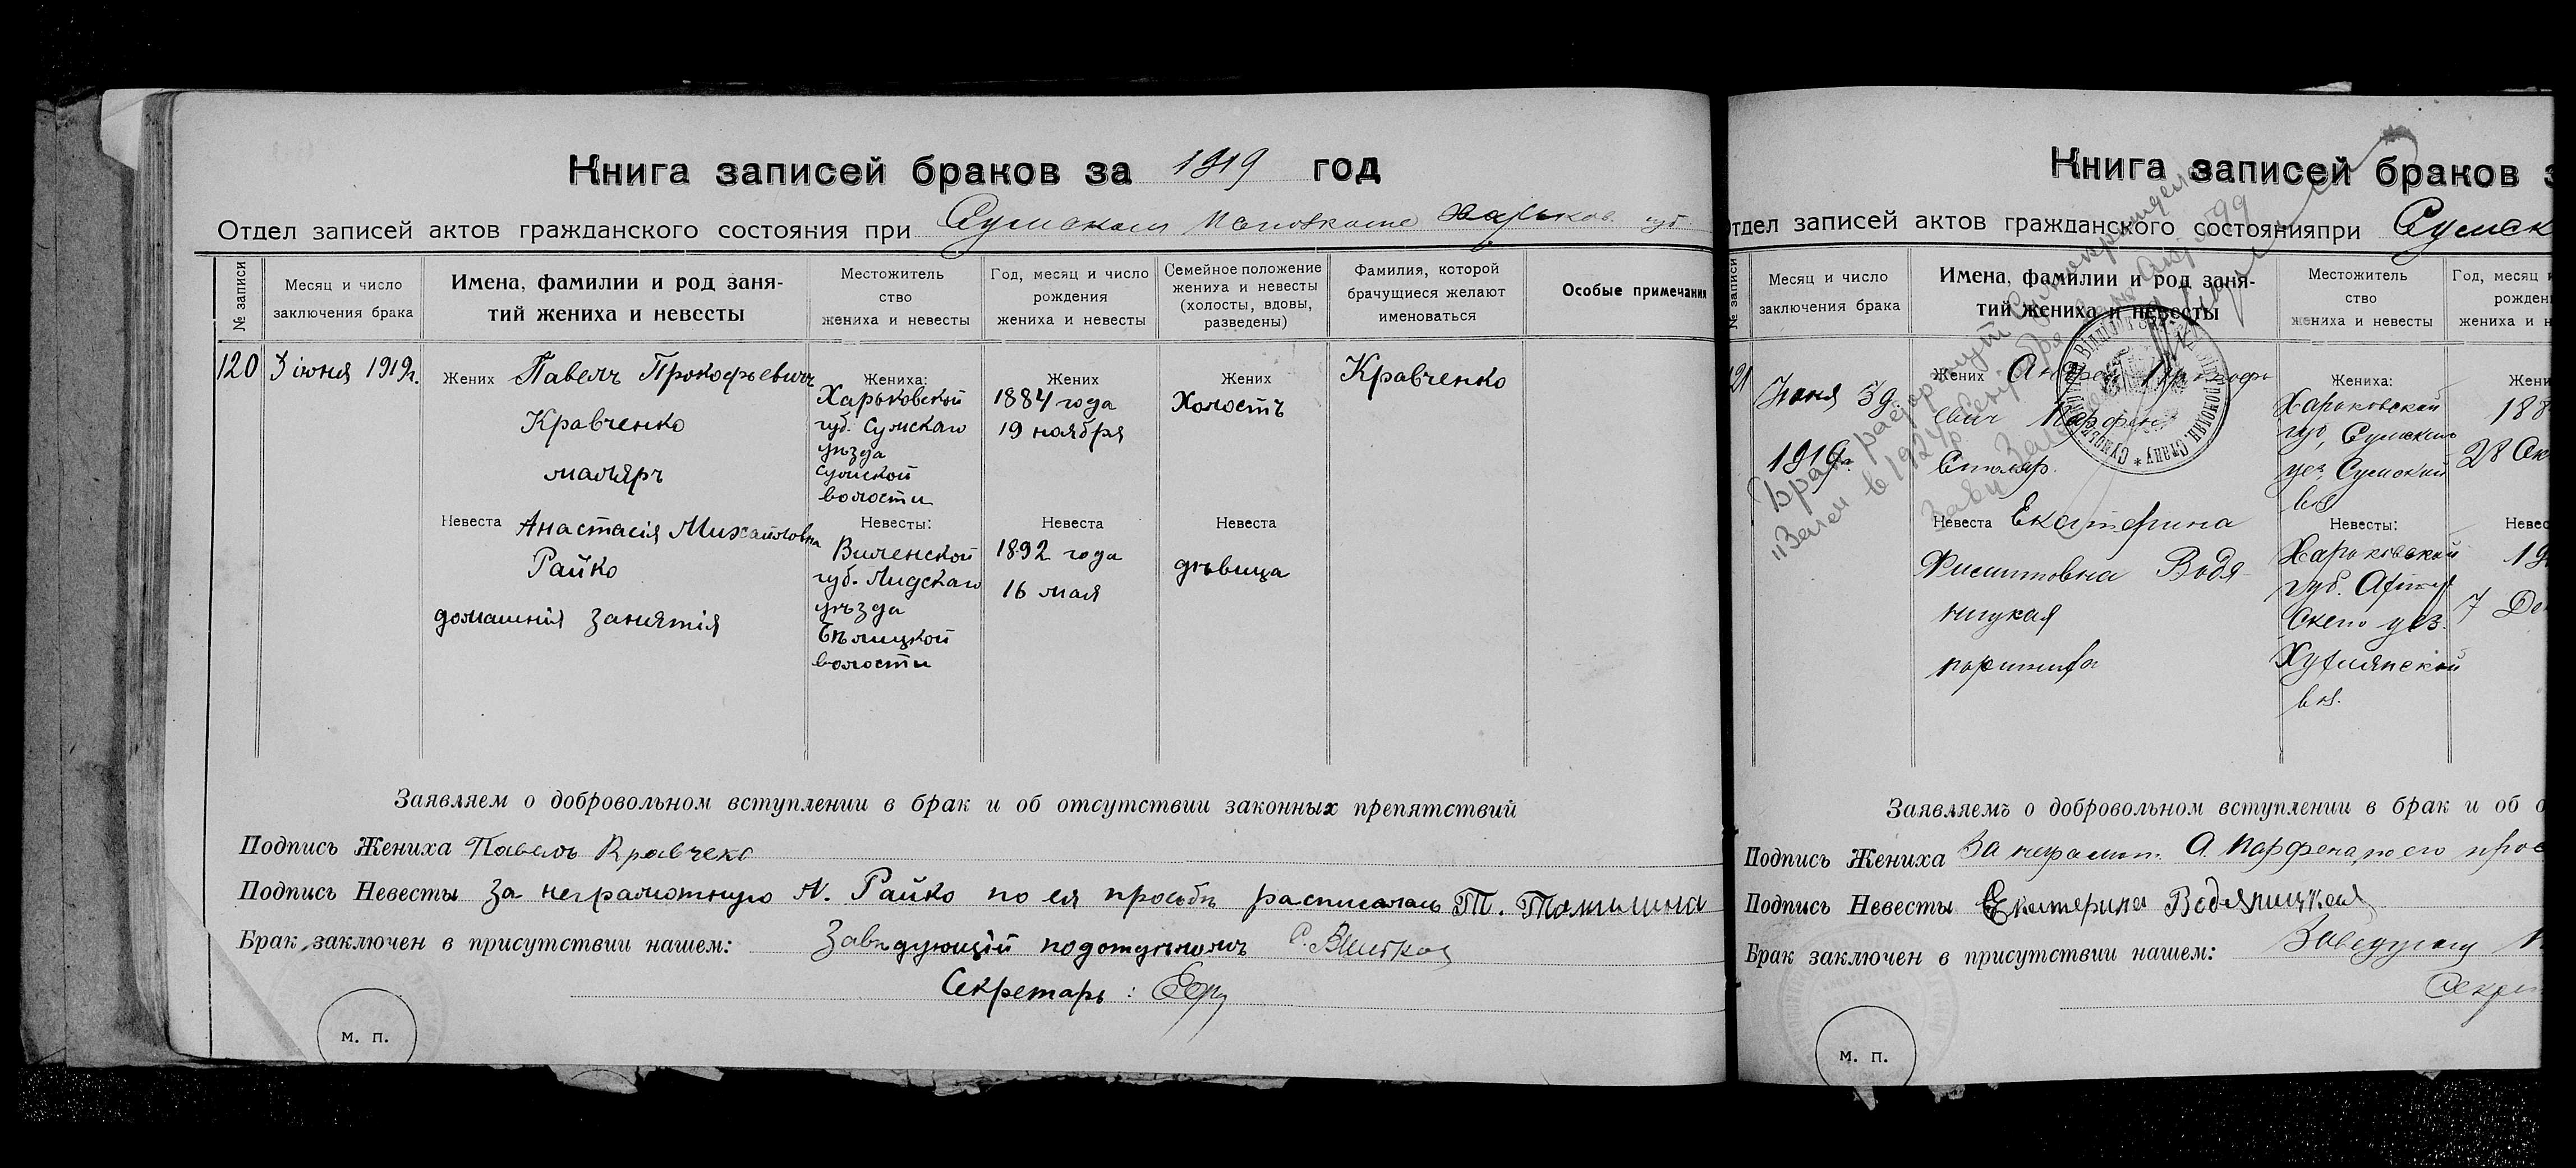 Книга записей браков за 1919 год
Отдел записей актов гражданского состояния при Сумском Исполкоме Харьков. губ.
№ записи
Месяц и число
заключения брака
Имена, фамилии и род заня-
тий жениха и невесты
Местожитель
ство
жениха и невесты
Год, месяц и число
рождения
жениха и невесты
Семейное положение
жениха и невесты
(холосты, вдовы,
разведены)
Фамилия, которой
брачущиеся желают
именоваться
Особые примечания
120
3 іюня 1919г.
Жених Павелъ Прокофьевичъ
Кравченко
маляръ
Жениха:
Харьковской
губ. Сумскаго
уѣзда
Сумской
волости
Жених
1884 года
19 ноября
Жених
Холостъ
Кравченко
Невеста Анастасія Михайловна
Райко
домашнія занятія
Невесты:
Виленской
губ. Лидскаго
уѣзда
Бѣлицкой
волости
Невеста
1892 года
16 мая
Невеста
дѣвица
Заявляем о добровольном вступлении в брак и об отсутствии законных препятствий
Подпись Жениха Павелъ Кравчеко
Подпись Невесты За неграмотную А. Райко по ея просьбѣ расписалась Т.
Брак заключен в присутствии нашем: Завѣдующій подотдѣломъ
Секретарь:
м. п.
Книга записей браков з
Отдел записей актов гражданского состояния при Сумск
№ записи
Месяц и число
заключения брака
Имена, фамилии и род заня-
тий жениха и невесты
Местожитель
ство
жениха и невесты
Год, месяц и
рожден
жениха и н
121
Июня 3 д
1919г.
Жених
Столяр.
Жениха:
Харьковской
губ, Сумскаго
уез. Сумской
вол
Жени
188
28 Ок
Невеста Екатерина
Филипповна Водя-
ницкая
портниха
Невесты:
Харьковской
губ. Ахтыр
ского уез.
вол.
Невес
19
7 Де
Заявляемъ о добровольном вступлении в брак и об о
Подпись Жениха За неграмот. А. Парфена, по его прос
Подпись Невесты Екатерина Водяницкая
Брак заключен в присутствии нашем: Заведующ
Секре
м. п.